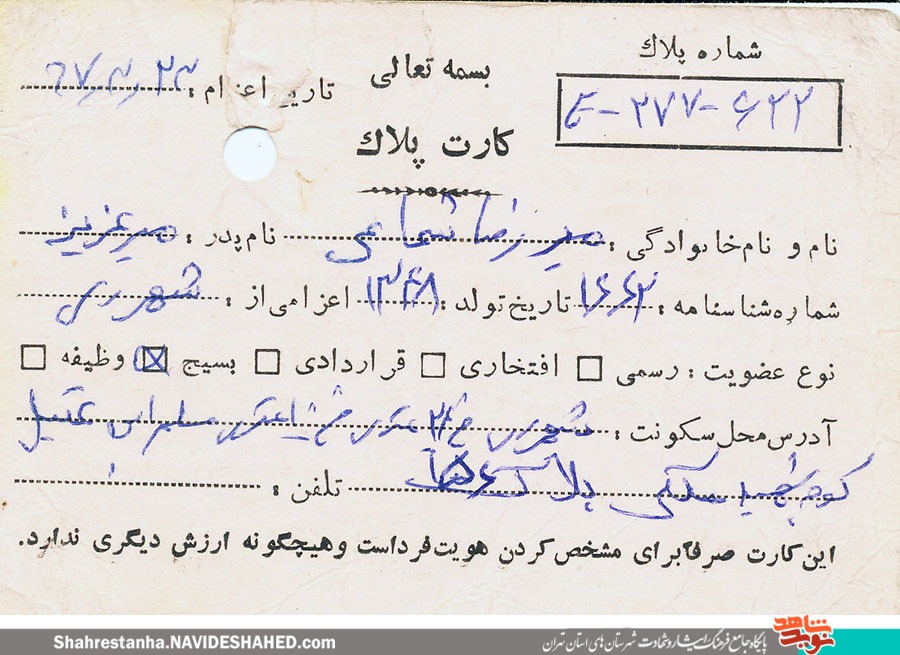 شماره پلاك
بسمه تعالی
تاریخ اعزام : ۶۷/۳/۲۳
E-۲۷۷-۶۲۲
کارت پلاك
نام و نام‌خانوادگی : میر رضا شجاعی نام پدر : میر عزیز
شماره شناسنامه : ۱۶۶۲ تاریخ تولد : ۱۳۴۸ اعزامی از : شهر ری
نوع عضویت : رسمی افتخاری قراردادی بسیج وظیفه
آدرس محل سکونت : شهر ری خ ۲۴ متری
کوچه پلاک
تلفن :
این کارت صرفاً برای مشخص کردن هویت فرد است و هیچگونه ارزش دیگری ندارد.
Shahrestanha.NAVIDESHAHED.com
پایگاه جامع فرهنگ ایثار و شهادت شهرستان های استان تهران
نوید شاهد